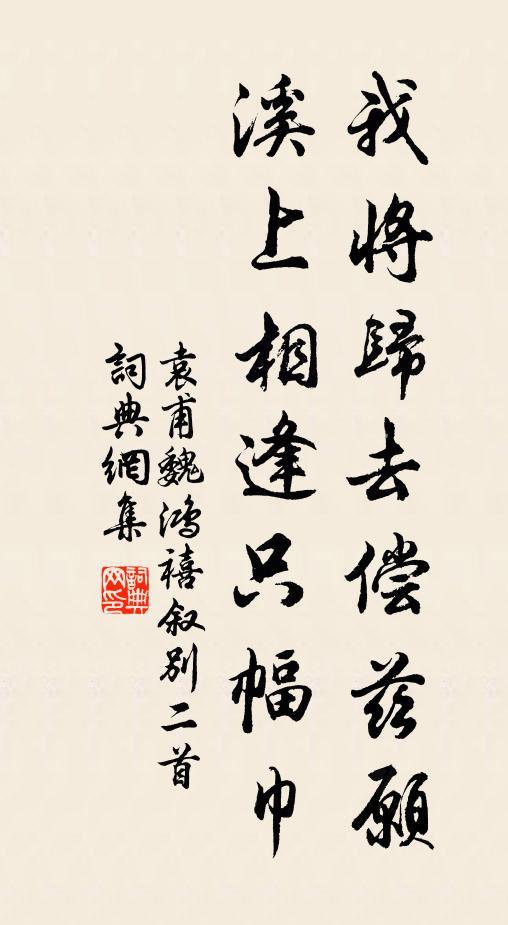 我将歸去偿茲願
溪上相逢只幅巾
袁甫魏鴻禧叙别二首
詞典網集
詞典網印